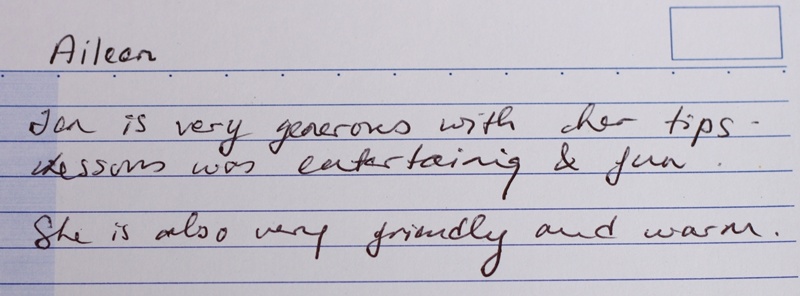 Aileen
Jan is very generous with her tips.
Lessons was entertainig & fun.
She is also very friendly and warm.